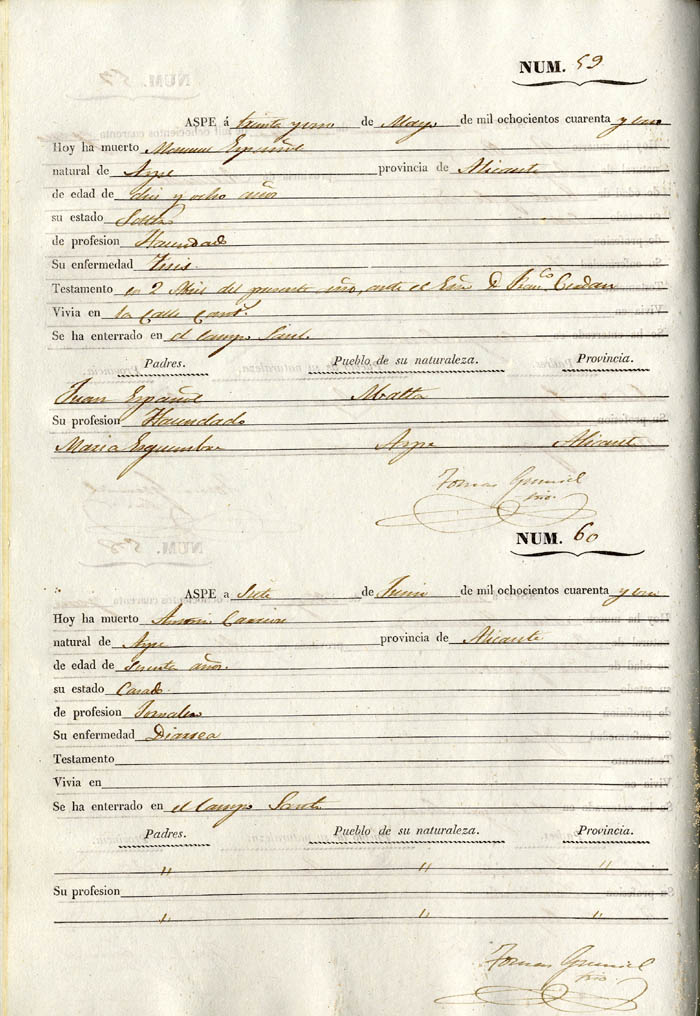 NUM. 59
ASPE á treinta y uno de Mayo de mil ochocientos cuarenta y uno
Hoy ha muerto Español
natural de Aspe provincia de Alicante
de edad de diez y ocho años
su estado Solt.
de profesion Hacendado
Su enfermedad Tisis.
Testamento en 2 Abril del presente año, ante el D. Fran.co
Vivia en la Calle
Se ha enterrado en el Campo Sant.
Padres. Pueblo de su naturaleza. Provincia.
Juan Español
Su profesion Hacendado
Maria Aspe Alicant.
Tomas
NUM. 60
ASPE a Siete de Junio de mil ochocientos cuarenta y uno
Hoy ha muerto
natural de Aspe provincia de Alicante
de edad de años.
su estado Casado.
de profesion Jornalero
Su enfermedad Diarrea
Testamento
Vivia en
Se ha enterrado en el Campo Santo
Padres. Pueblo de su naturaleza. Provincia.
" " "
Su profesion
" " "
Tomas